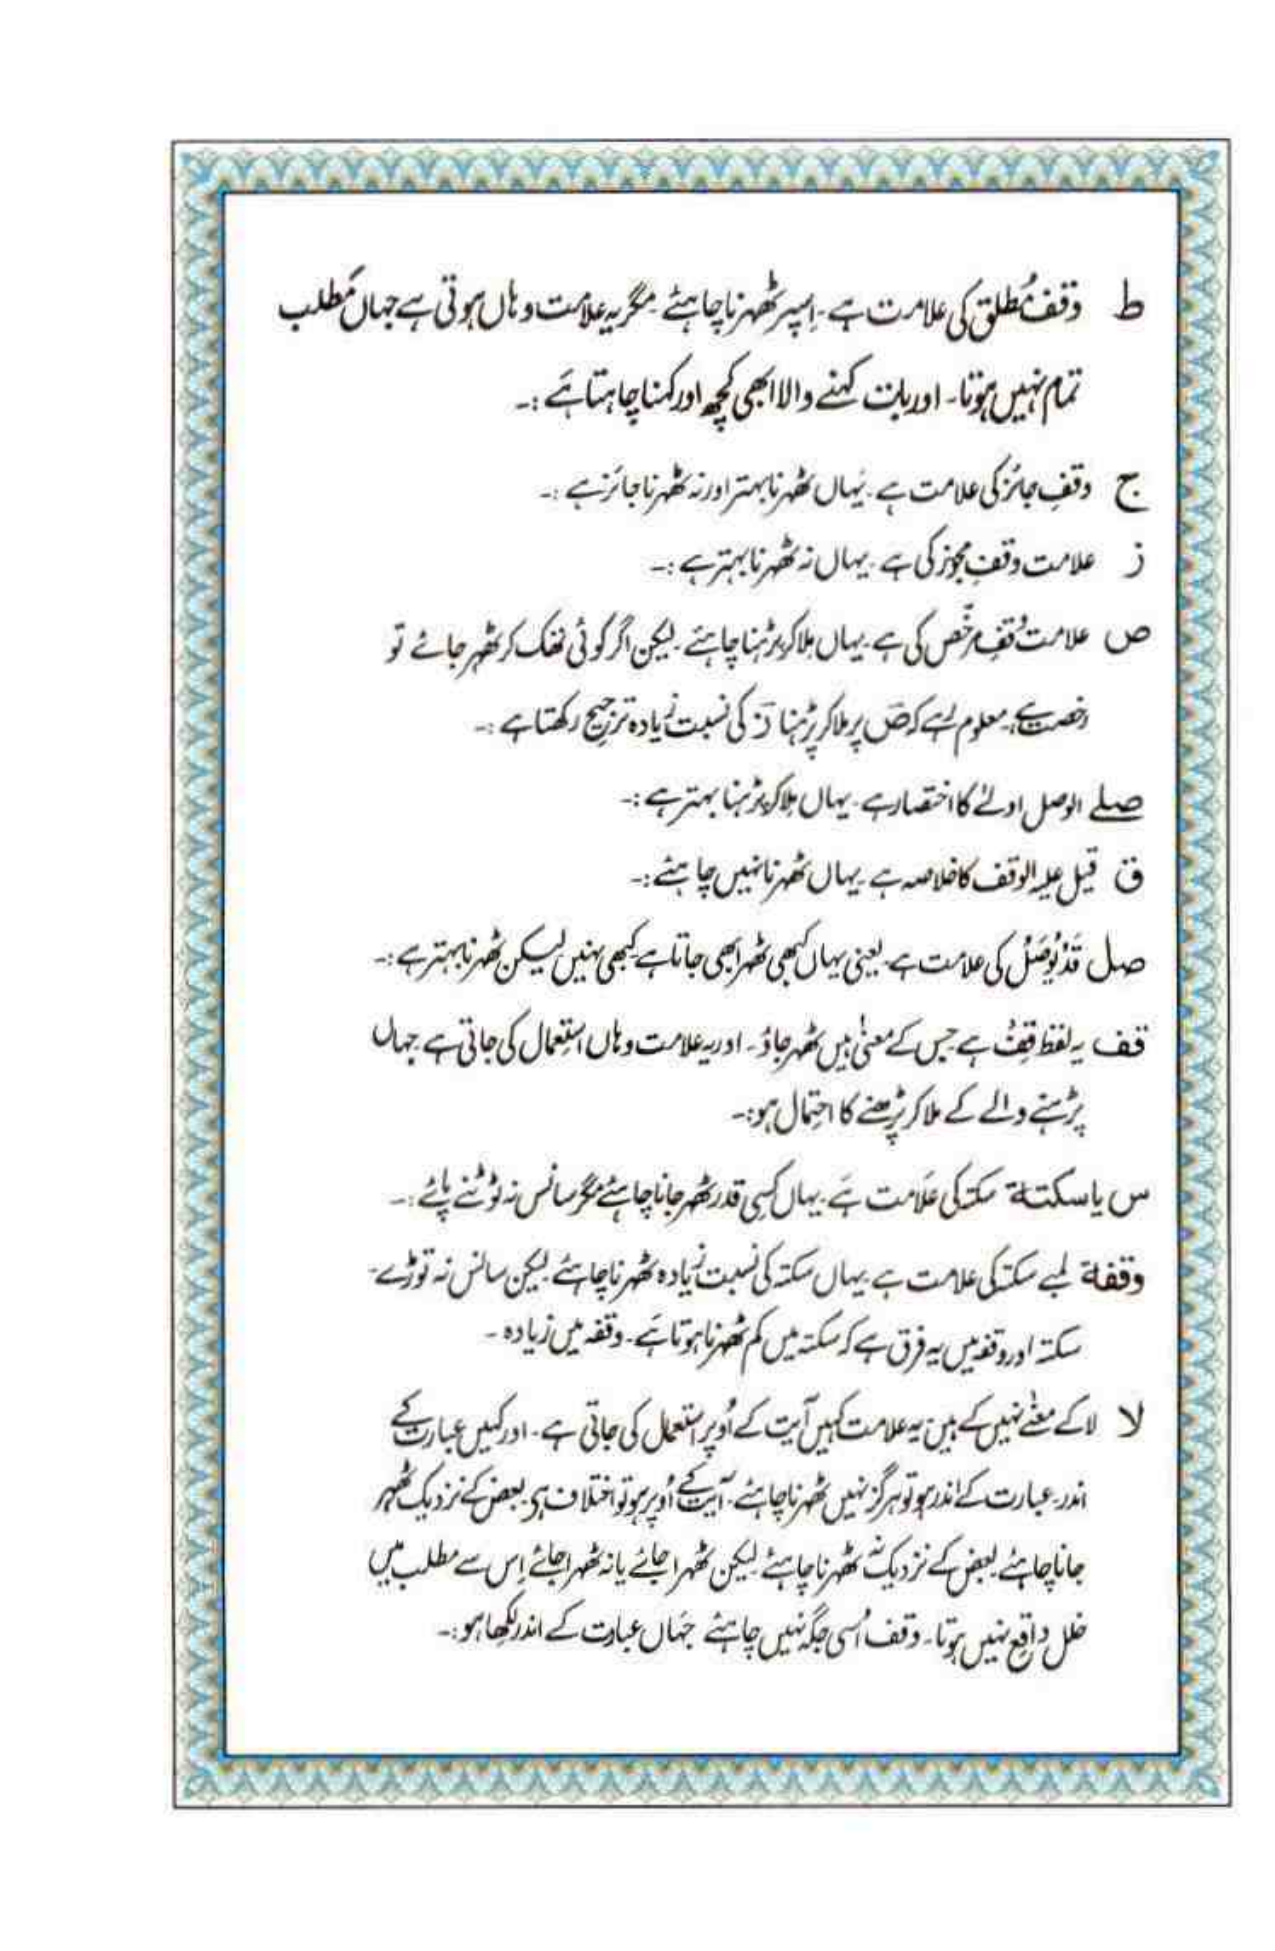 ط وقف مُطلق کی علامت ہے۔ اِسپر ٹھہرنا چاہئے۔ مگر یہ علامت وہاں ہوتی ہے جہاں مَطلب
تمام نہیں ہوتا۔ اور بات کہنے والا ابھی کچھ اور کہنا چاہتا ہَے :۔
ج وقفِ جائز کی علامت ہے۔ یہاں ٹھہرنا بہتر اور نہ ٹھہرنا جائز ہے :۔
ز علامت وقفِ مجوّز کی ہے۔ یہاں نہ ٹھہرنا بہتر ہے :۔
ص علامت وقفِ مرخّص کی ہے۔ یہاں مِلا کر پڑہنا چاہئے۔ لیکن اگر کوئی تھک کر ٹھہر جائے تو
رخصت ہے۔ معلوم رہے کہ صؔ پر ملا کر پڑہنا زؔ کی نسبت زیادہ ترجیح رکھتا ہے :۔
صلے الوصل اولےٰ کا اختصار ہے۔ یہاں مِلا کر پڑہنا بہتر ہے :۔
ق قیل علیہ الوقف کا خلاصہ ہے۔ یہاں ٹھہرنا نہیں چاہئے :۔
صل قَدْ یُوصَلُ کی علامت ہے۔ یعنی یہاں کبھی ٹھہرا بھی جاتا ہے کبھی نہیں لیکن ٹھہرنا بہتر ہے :۔
قف یہ لفظ قِفْ ہے جس کے معنیٰ ہیں ٹھہر جاؤ۔ اور یہ علامت وہاں استِعمال کی جاتی ہے جہاں
پڑہنے والے کے ملا کر پڑھنے کا احتِمال ہو :۔
س یا سکتة سکتہ کی علَامت ہَے۔ یہاں کسِی قدر ٹھہر جانا چاہئے مگر سانس نہ ٹوٹنے پائے :۔
وقفة لمبے سکتہ کی علامت ہے۔ یہاں سکتہ کی نسبت زیادہ ٹھہرنا چاہئے لیکن سانس نہ توڑے۔
سکتہ اور وقفہ میں یہ فرق ہے کہ سکتہ میں کم ٹھہرنا ہوتا ہَے۔ وقفہ میں زیادہ۔
لا لا کے معنےٰ نہیں کے ہیں۔ یہ علامت کہیں آیت کے اُوپر استعمال کی جاتی ہے۔ اور کہیں عبارت کے
اندر۔ عبارت کے اندر ہو تو ہرگز نہیں ٹھہرنا چاہئے۔ آیت کے اُوپر ہو تو اختلاف ہی بعض کے نزدیک ٹھہر
جانا چاہئے بعض کے نزدیک نہ ٹھہرنا چاہئے لیکن ٹھہرا جائے یا نہ ٹھہرا جائے اِس سے مطلب میں
خلل واقع نہیں ہوتا۔ وقف اُسی جگہ نہیں چاہئے جہَاں عبارت کے اندر لکھا ہو :۔